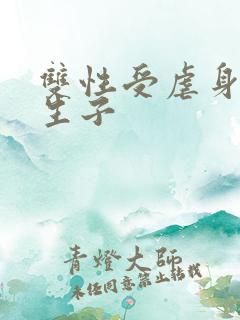 雙性受虐身
生子
青燈大師
未經同意禁止轉載